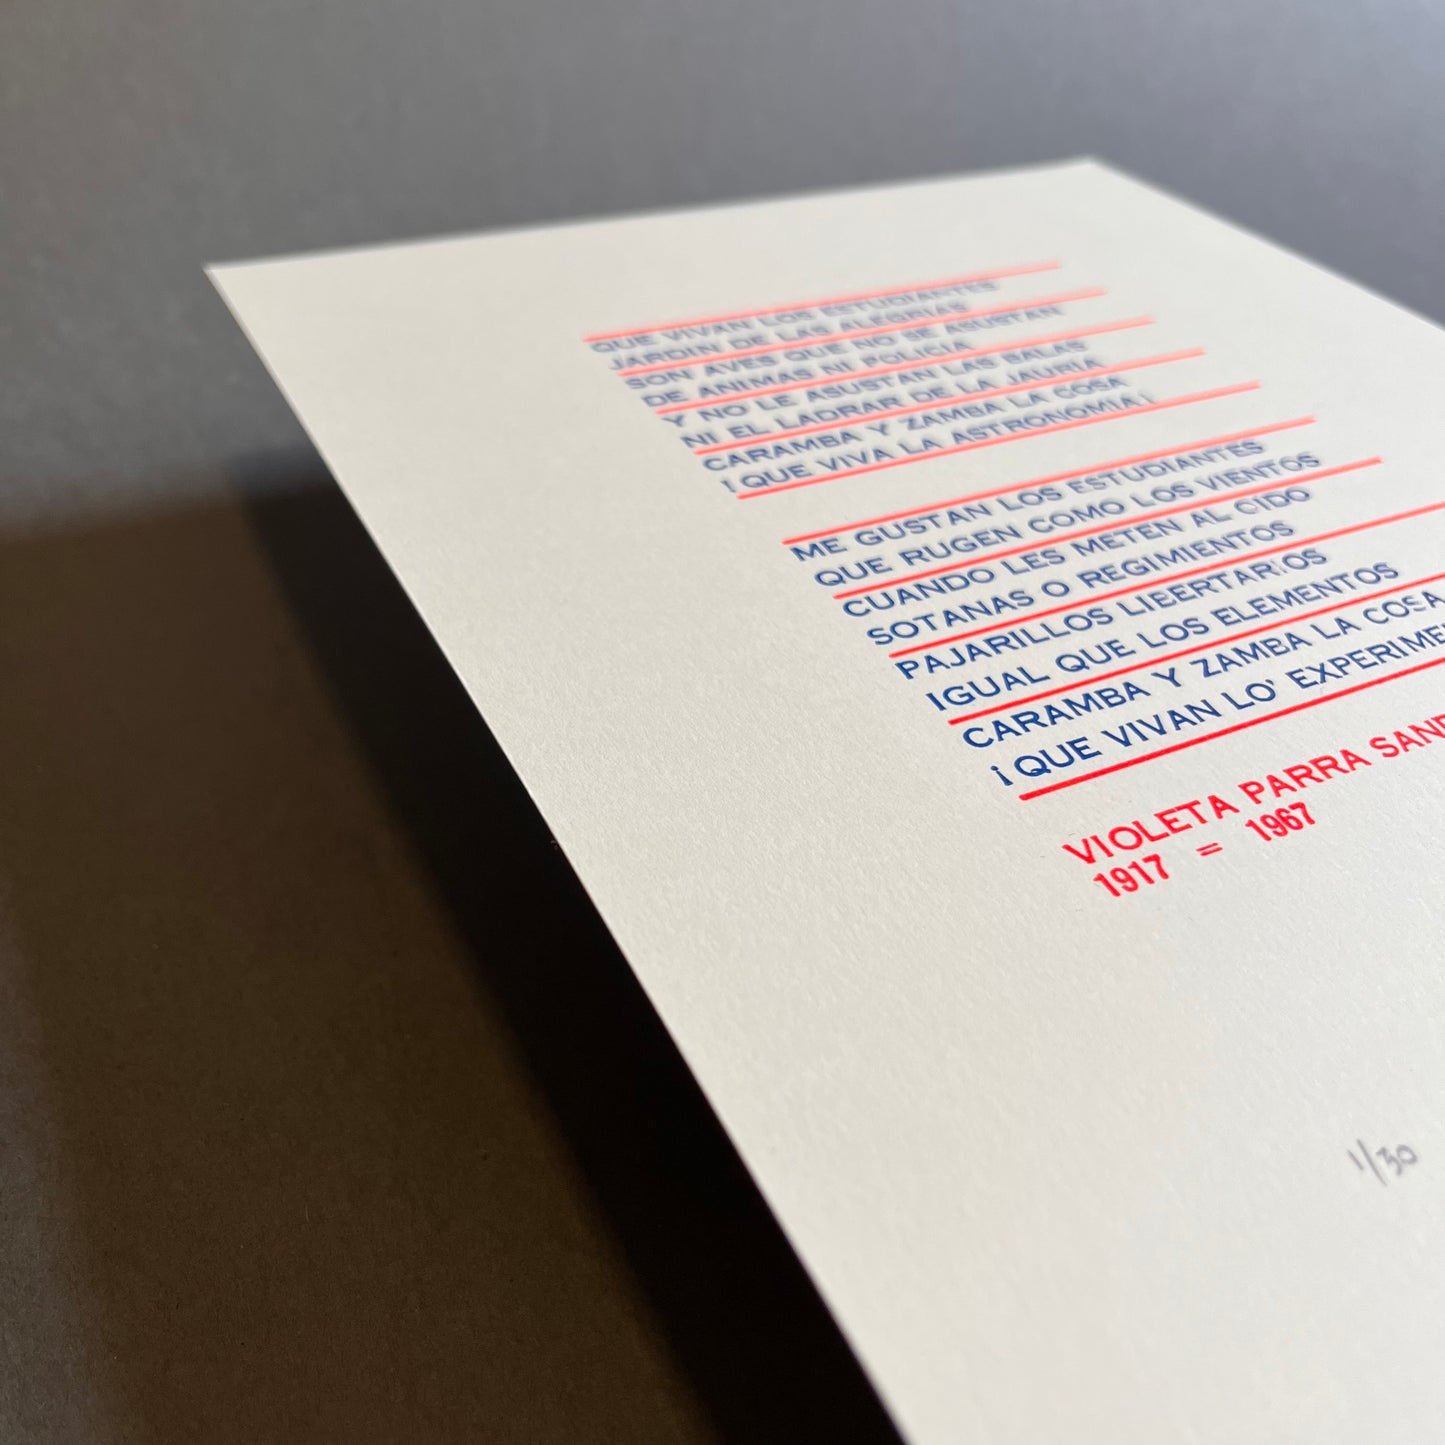 QUE VIVAN LOS ESTUDIANTES
JARDIN DE LAS ALEGRIAS
SON AVES QUE NO SE ASUSTAN
DE ANIMAS NI POLICIA
Y NO LE ASUSTAN LAS BALAS
NI EL LADRAR DE LA JAURIA
CARAMBA Y ZAMBA LA COSA
¡QUE VIVA LA ASTRONOMIA¡
ME GUSTAN LOS ESTUDIANTES
QUE RUGEN COMO LOS VIENTOS
CUANDO LES METEN AL OIDO
SOTANAS O REGIMIENTOS
PAJARILLOS LIBERTARIOS
IGUAL QUE LOS ELEMENTOS
CARAMBA Y ZAMBA LA COSA
¡QUE VIVAN LO' EXPERIME
VIOLETA PARRA SAN
1917 = 1967
1/30